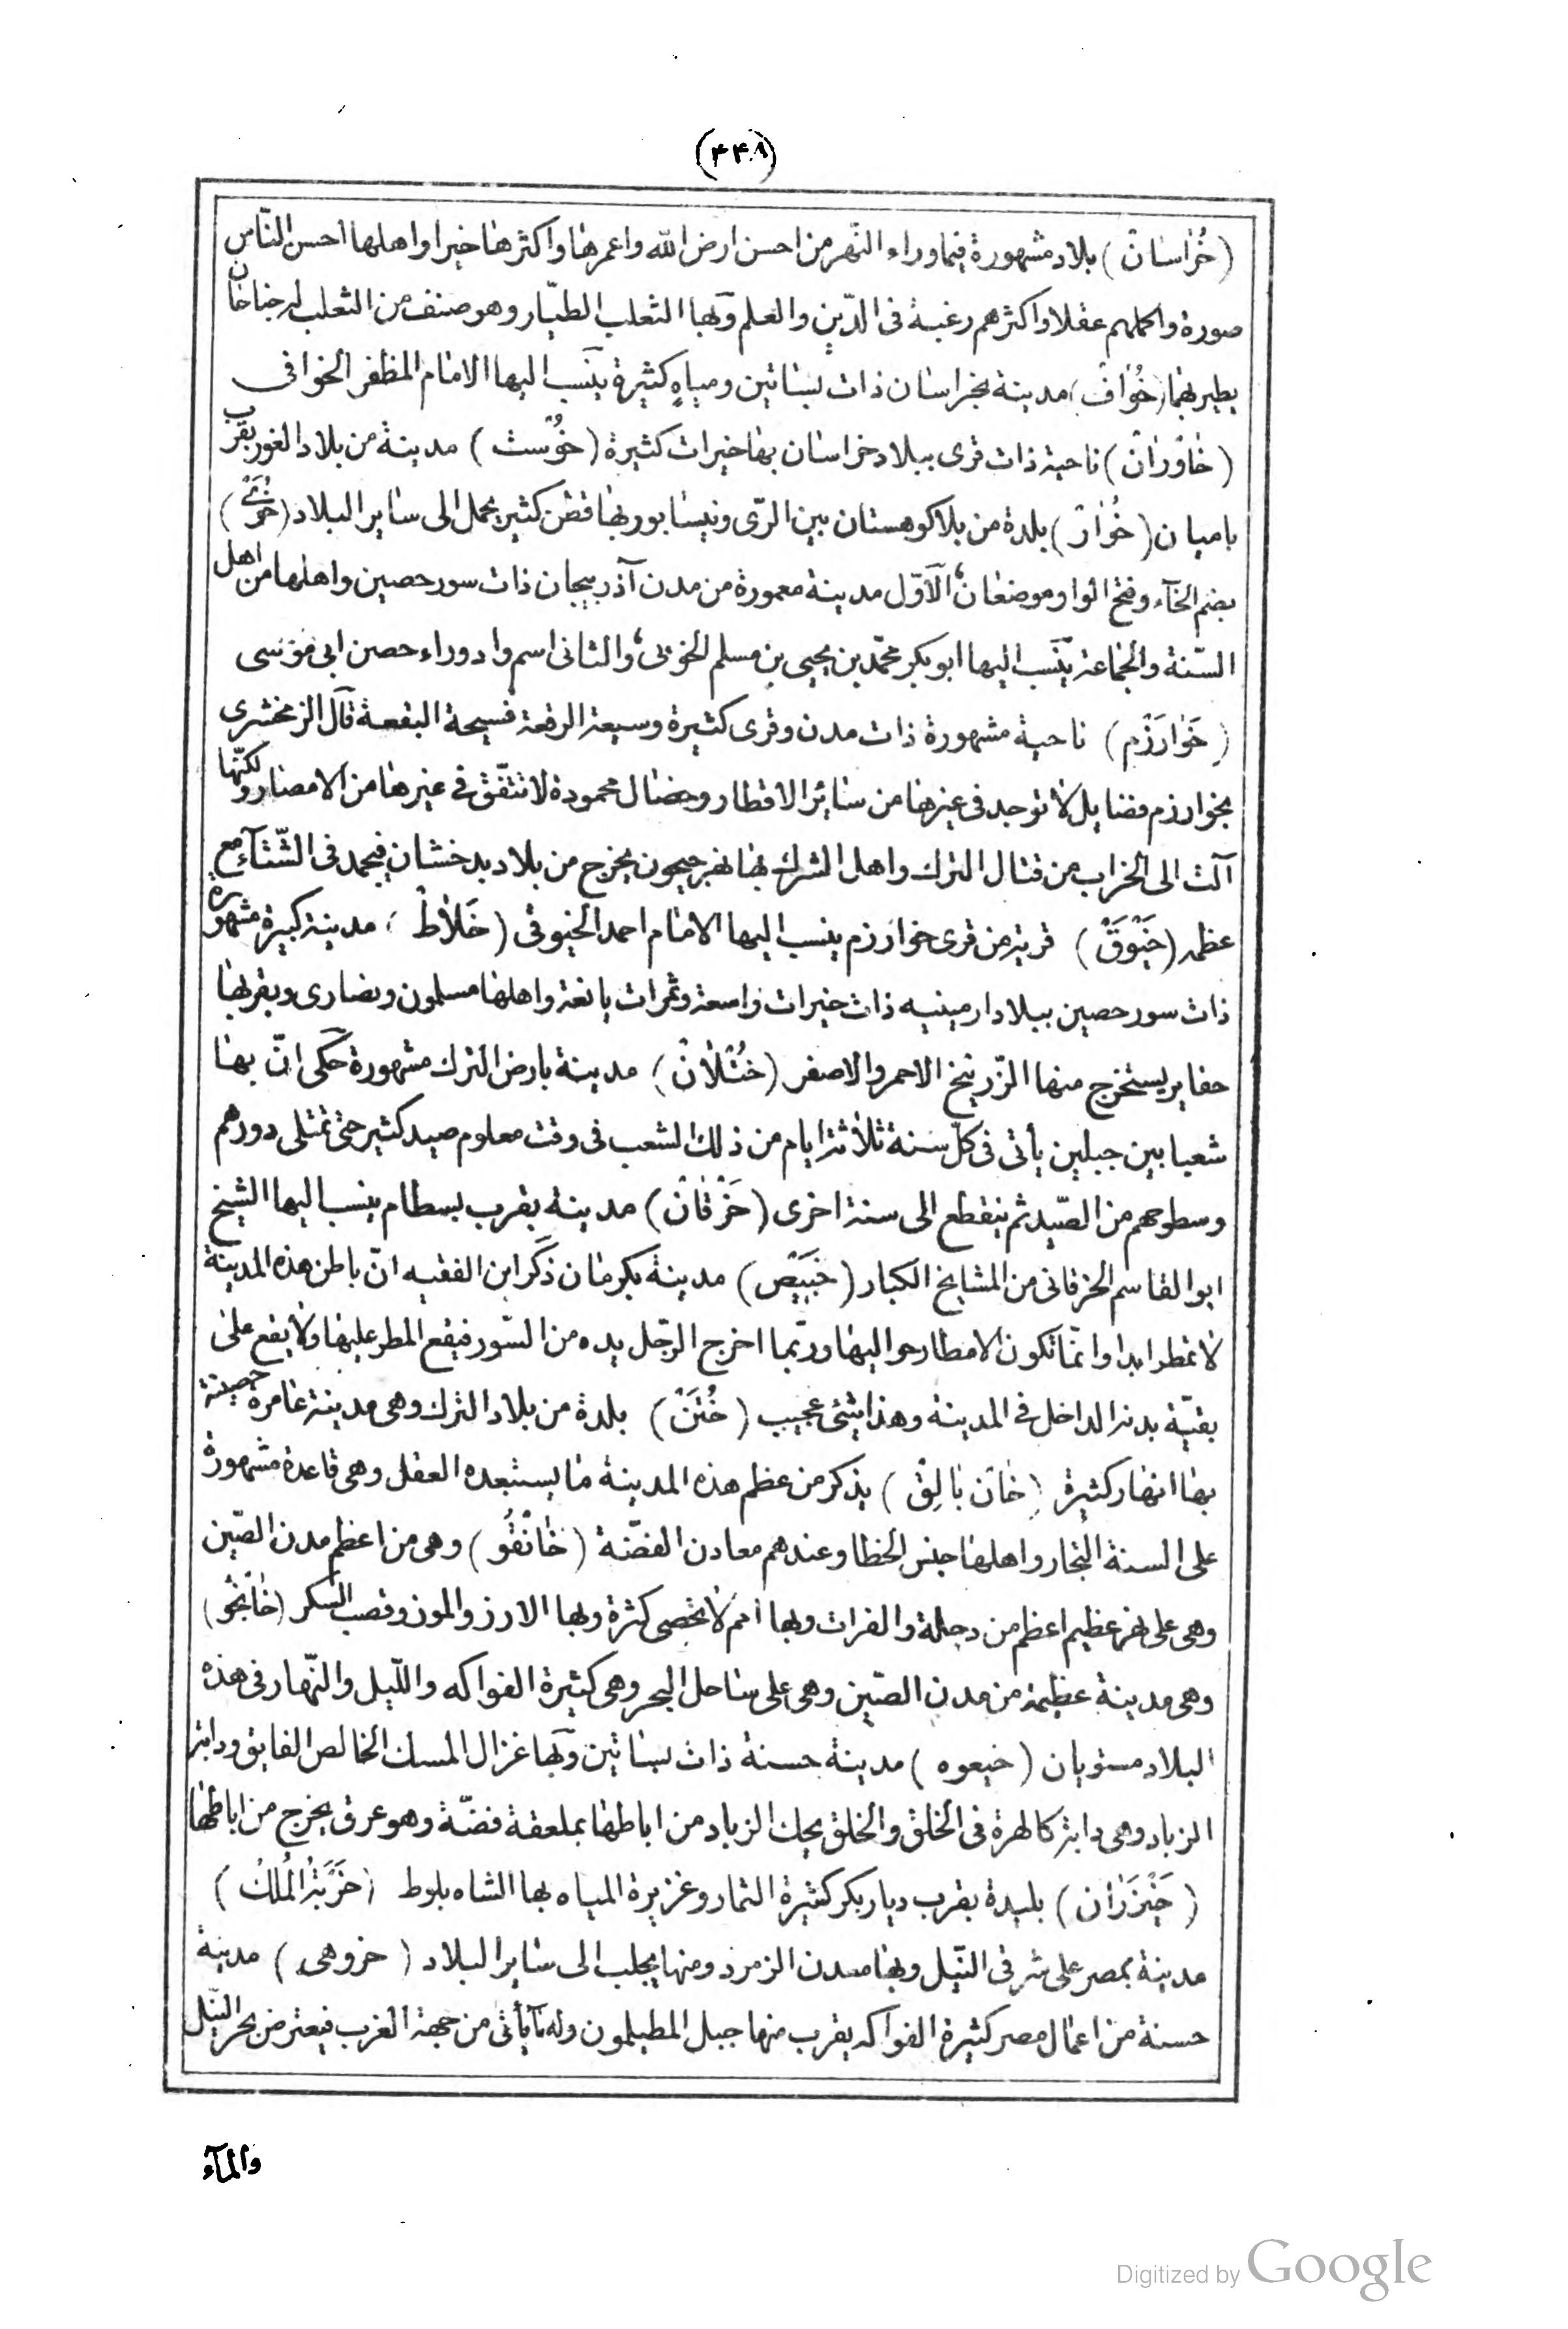 (٤٤٨)
(خُراسٰان) بلاد مشهورة فيما وراء النّهر من احسن ارض الله واعمرها واكثرها خيرا واهلها احسن النّاس
صورة واكملهم عقلا واكثرهم رغبة فى الدّين والعلم وبها الثعلب الطيّار وهو صنف من الثعلب له جناحان
يطير بهما (خُوٰافْ) مدينة بخراسان ذات بساتين ومياهٍ كثيرة ينسب اليها الامام المظفر الخوافى
(خٰاوَرٰانْ) ناحية ذات قرى ببلاد خراسان بها خيرات كثيرة (خُوْسْت) مدينة من بلاد الغور بقرب
باميان (خُوٰارْ) بلدة من بلاد كوهستان بين الرّى ونيسابور بها قطن كثير يحمل الى ساير البلاد (خُوَىّْ)
بضم الخآء وفتح الواو موضعان، الاوّل مدينة معمورة من مدن آذربيجان ذات سور حصين واهلها من اهل
السّنة والجماعة ينسب اليها ابو بكر محمّد بن يحيى بن مسلم الخويى، والثانى اسم واد وراء حصن ابى موسى
(خَوٰارَزْم) ناحية مشهورة ذات مدن وقرى كثيرة وسيعة الرقعة فسيحة البقعة قال الزمخشرى
بخوارزم فضايل لا توجد فى غيرها من سائر الاقطار وخصال محمودة لا تتفّق فى غيرها من الامصار ولكنّها
آلت الى الخراب من قتال الترك واهل الشرك بها نهر جيحون يخرج من بلاد بدخشان فيجمد فى الشّتآء مع
عظمه (خَيْوَقْ) قرية من قرى خوارزم ينسب اليها الامام احمد الخيوقى (خَلاٰطْ) مدينة كبيرة مشهورة
ذات سور حصين ببلاد ارمينيه ذات خيرات واسعة وثمرات يانعة واهلها مسلمون ونصارى وبقربها
حفاير يستخرج منها الزّرنيخ الاحمر والاصفر (خُتْلاٰنْ) مدينة بارض الترك مشهورة حكى انّ بها
شعبا بين جبلين يأتى فى كلّ سنة ثلاثة ايام من ذلك الشعب فى وقت معلوم صيد كثير حتى تمتلى دورهم
وسطوحهم من الصّيد ثم ينقطع الى سنة اخرى (خَرْقٰانْ) مدينة بقرب بسطام ينسب اليها الشيخ
ابو القاسم الخرقانى من المشايخ الكبار (خَبِيْصْ) مدينة بكرمان ذكر ابن الفقيه انّ باطن هذه المدينة
لا تمطر ابدا وانمّا تكون الامطار حواليها وربّما اخرج الرجّل يده من السّور فيقع المطر عليها ولا يقع على
بقيّة بدنه الداخل فى المدينة وهذا شئ عجيب (خُتَنْ) بلدة من بلاد الترك وهى مدينة عامرة حصينة
بها انهار كثيرة (خٰانْ بٰالِقْ) يذكر من عظم هذه المدينة ما يستبعده العقل وهى قاعدة مشهورة
على السنة التجار واهلها جنس الخطا وعندهم معادن الفضّة (خٰانْقُو) وهى من اعظم مدن الصّين
وهى على نهر عظيم اعظم من دجلة والفرات وبها امم لا تحصى كثرة وبها الارز والموز وقصب السّكر (خٰانْجُو)
وهى مدينة عظيمة من مدن الصّين وهى على ساحل البحر وهى كثيرة الفواكه واللّيل والنّهار فى هذه
البلاد مستويان (خيعوه) مدينة حسنة ذات بساتين وبها غزال المسك الخالص الفايق ودابة
الزباد وهى دابة كالهرة فى الخلق والخلق يحك الزباد من اباطها بملعقة فضّة وهو عرق يخرج من اباطها
(خَيْزَرٰان) بليدة بقرب ديار بكر كثيرة الثمار وغزيرة المياه بها الشاه بلوط (خَرِبَةُ الْمُلْكُ)
مدينة بمصر على شرقى النّيل وبها معدن الزمرد ومنها يجلب الى ساير البلاد (خروهى) مدينة
حسنة من اعمال مصر كثيرة الفواكه يقرب منها جبل المطيلمون وله يأتى من جهة الغرب فيعترض بحر النّيل
والمآء
Digitized by Google